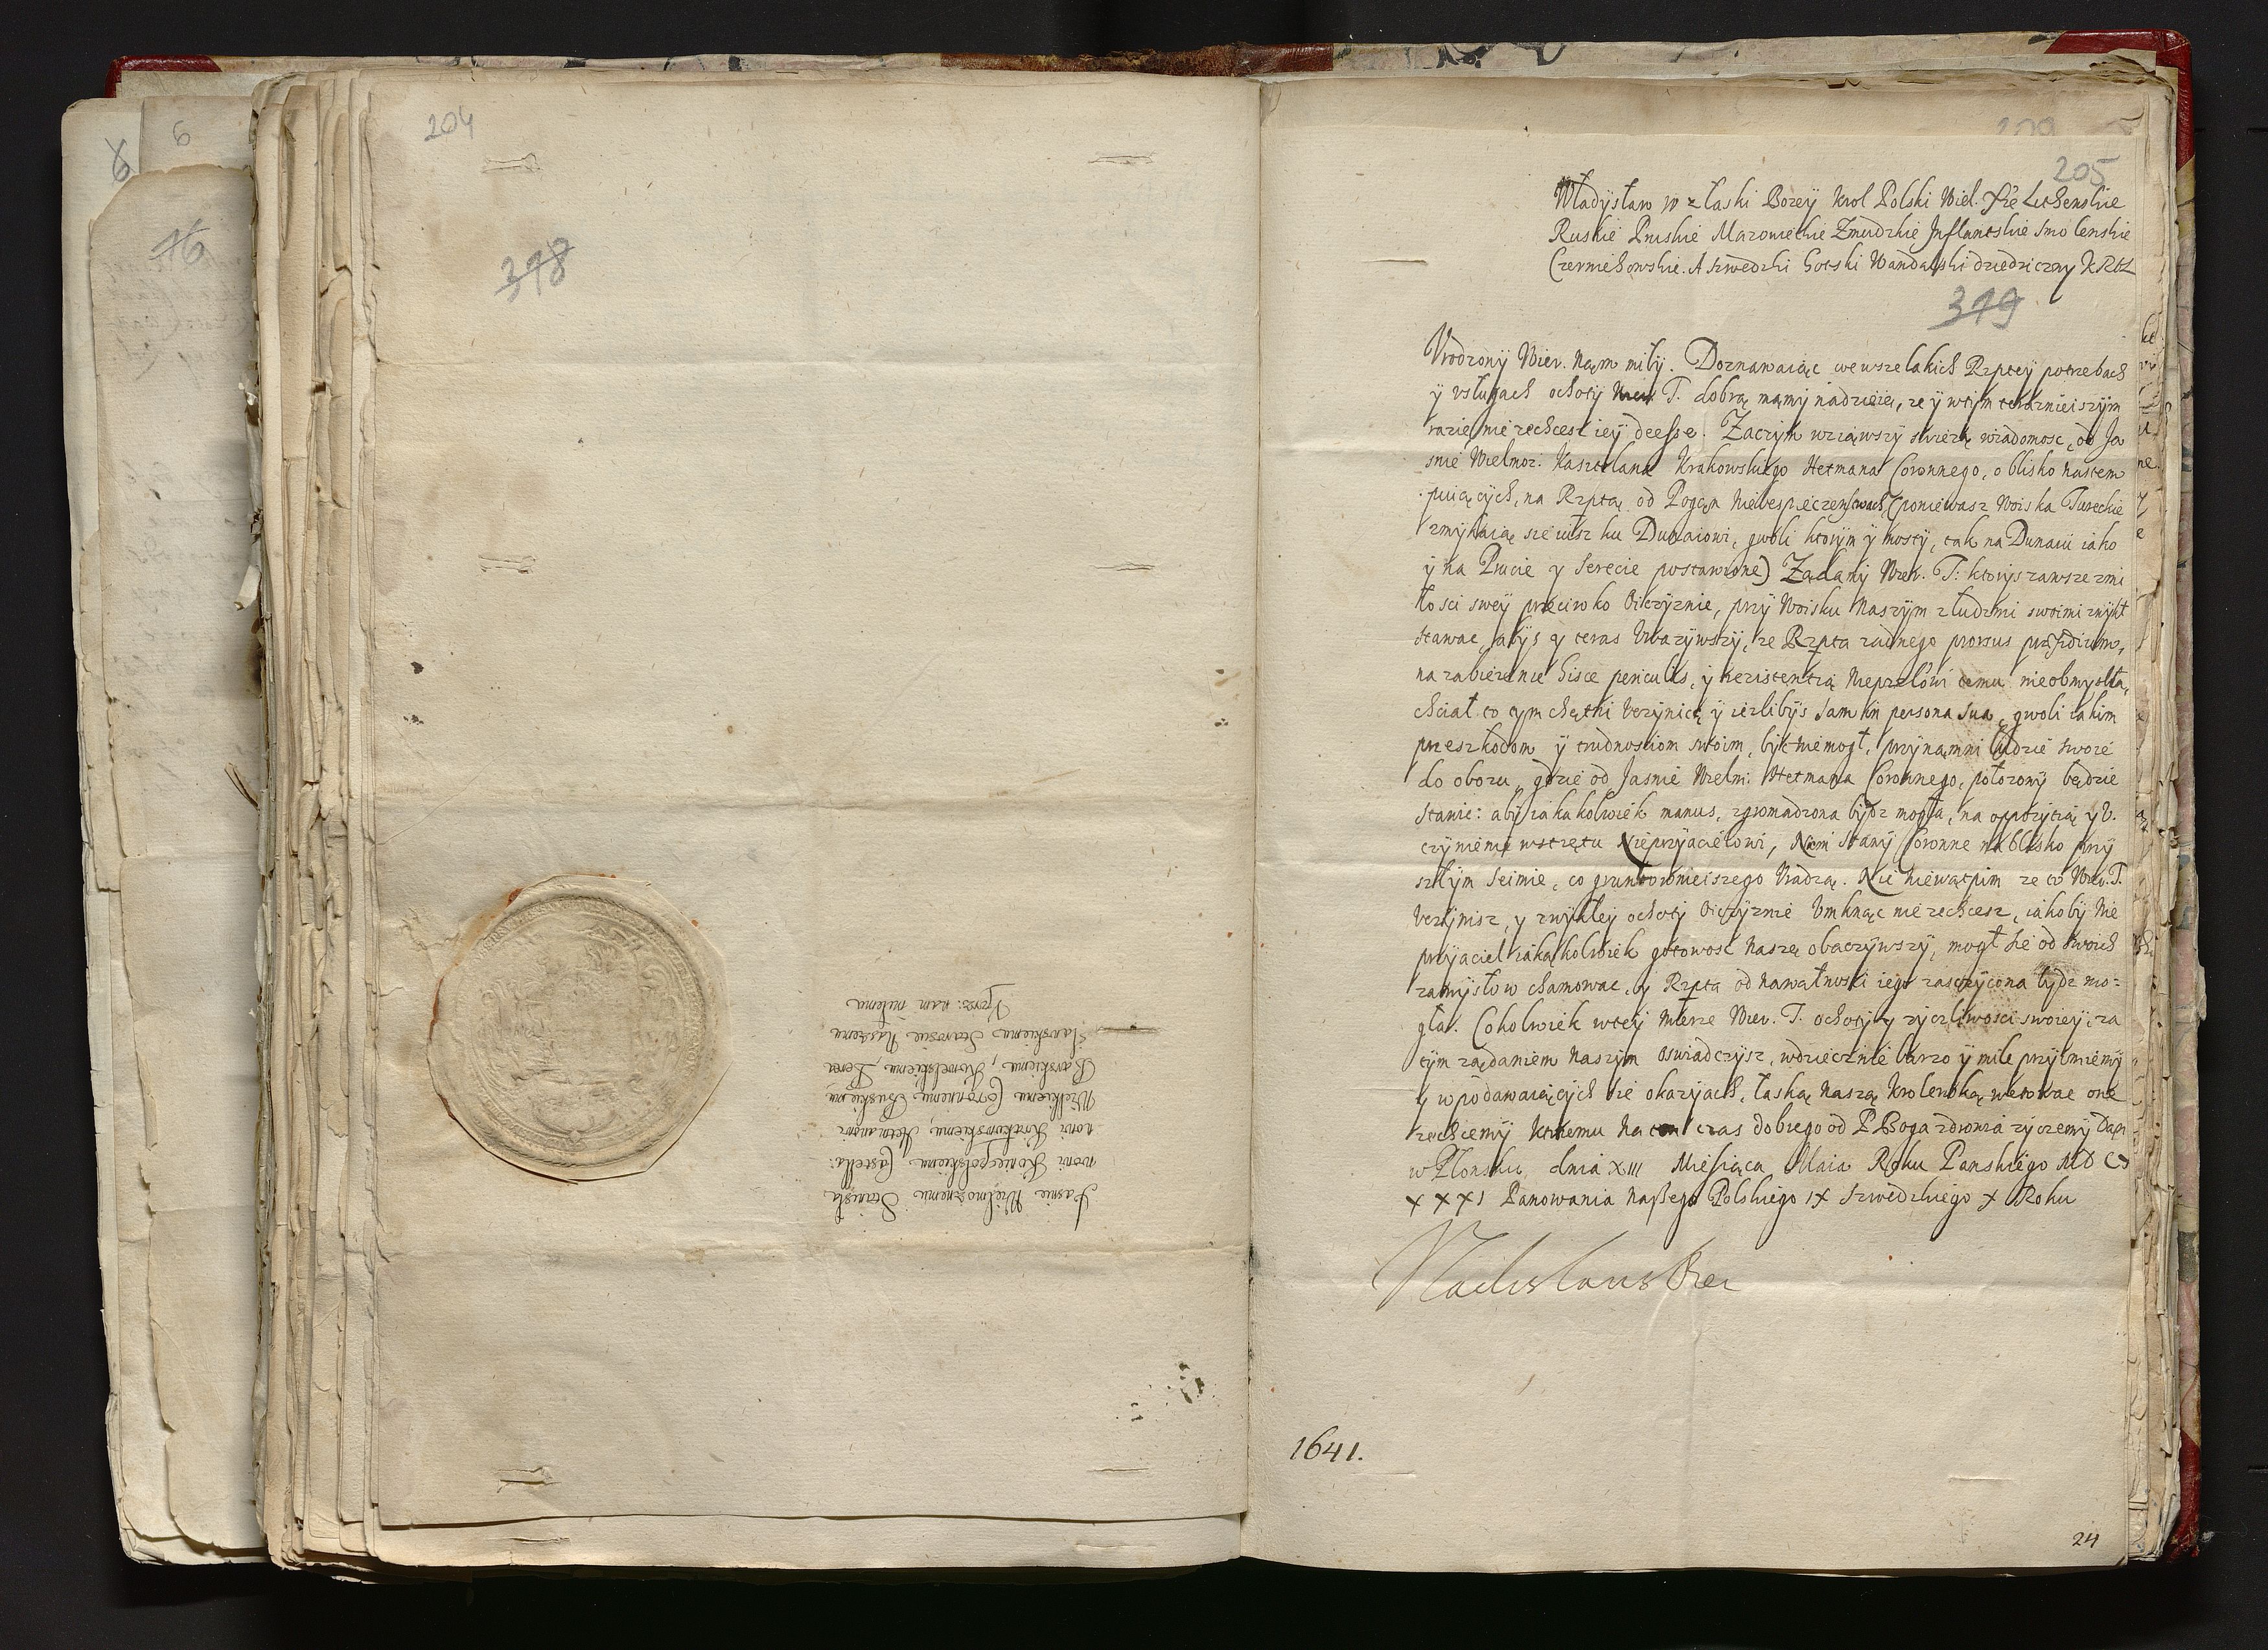 204
398
Jasnie Wielmożnemu Stanisła
wowi Koniecpolskiemu Castella:
nowi Krakowskiemu, Hetmanowi
Wielkiemu Coronnemu Buskiemu
Barskiemu, Kowelskiemu, Perea
sławskiemu Staroscie Naszemu
Vprz: nam miłemu
205
Władysław IV z łaski Bozey Krol Polski Wiel. Xże Lithewskie
Ruskie Pruskie Mazowieckie Zmudzkie Inflantskie Smolenskie
Czerniehowskie. A Szwedzki Gotski Wandalski dziedziczny KRol
319
Vrodzony Wier. Nąm miły. Doznawaiąc we wszelakich Rzptey potrzebach
y vsługach ochoty Wier. T. dobrą mąmy nadzieię, ze y w tym teraznieiszym
razie nie zechcesz iey deesse. Zaczym wziąwszy swiezą wiadomosc, od Ja
snie Wielmoz: Kasztelana Krakowskiego Hetmana Coronnego, o blisko nastem
puiących, na Rzptą od Pogąn Niebespieczenstwach, (poniewasz Woiska Tureckie
zmykaią sie iusz ku Dunaiowi, gwoli ktorym y mosty, tak na Dunaiu iako
y na Prucie y Serecie postawione) Ządamy Wier. T: ktorys zawsze z mi
łosci swey przeciwko Oiczyznie, przy Woisku Naszym z ludzmi swoimi zwykł
stawac, abys y teras Vwazywszy, ze Rzpta zadnego prorsus præsidium,
na zabiezenie hisce periculis, y rezistentią Nieprzlowi temu nie obmysliła,
chciał to tym chętni Vczynic, y iezlibys sam in persona sua, gwoli iakim
przeszkodom y trudnosciom swoim, byc nie mogł, przynąmni ludzie swoie
do obozu, gdzie od Jasnie Wielm: Hetmana Coronnego, połozony będzie
stawic: aby iakakolwiek manus, zgromadzona bydz mogła, na oppozycią y V.
czynienie wstrętu Nieprzyacielowi, Nim Stany Coronne na blisko przy
szłym Seimie, co gruntownieiszego Vradzą. Nic niewątpim ze to Wier. T.
Vczynisz, y zwykłey ochoty Oiczyznie Vmknąc nie zechcesz, iakoby Nie
przyaciel iakąkolwiek gotowosc naszą obaczywszy, mogł sie od swoich
zamysłow chamowac, y Rzpta od nawałnosci iego zasczycona bydz mo=
gła. Cokolwiek w tey mierze Wier. T. ochoty y zyczliwosci swoiey, za
tym ządaniem naszym oswiadczysz, wdziecznie barzo y mile przyimiemy
y w podawaiących sie okazyach, łaską naszą Krolewską wetowac one
zechcemy ktoremu na ten czas dobrego od P Boga zdrowia zyczemy Dąn
w Płonsku dnia XIII Miesiąca Maia Roku Panskiego MDC
XXXXI Panowania naszego Polskiego IX Szwedzkiego X Roku
Vladislaus Rex
1641.
24